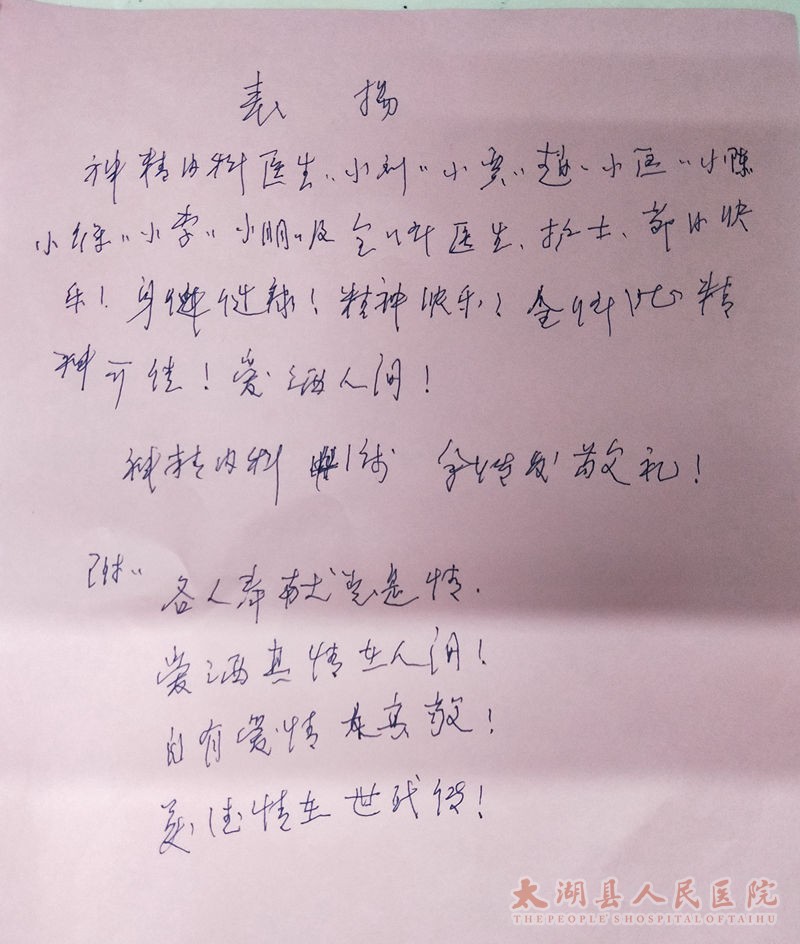 表 扬
神精内科医生、小刘、小 小医、小陈
小徐、小李、小明、及全体医生、护士、都为快
乐！身健健康！精神快乐！全体 精
神可佳！爱洒人间！
神精内科 敬礼！
附：
各人奉献 是情.
爱洒真情在人间！
自有爱情 真敬！
美德情在世代传！
太湖县人民医院
THE PEOPLE'S HOSPITAL OF TAIHU